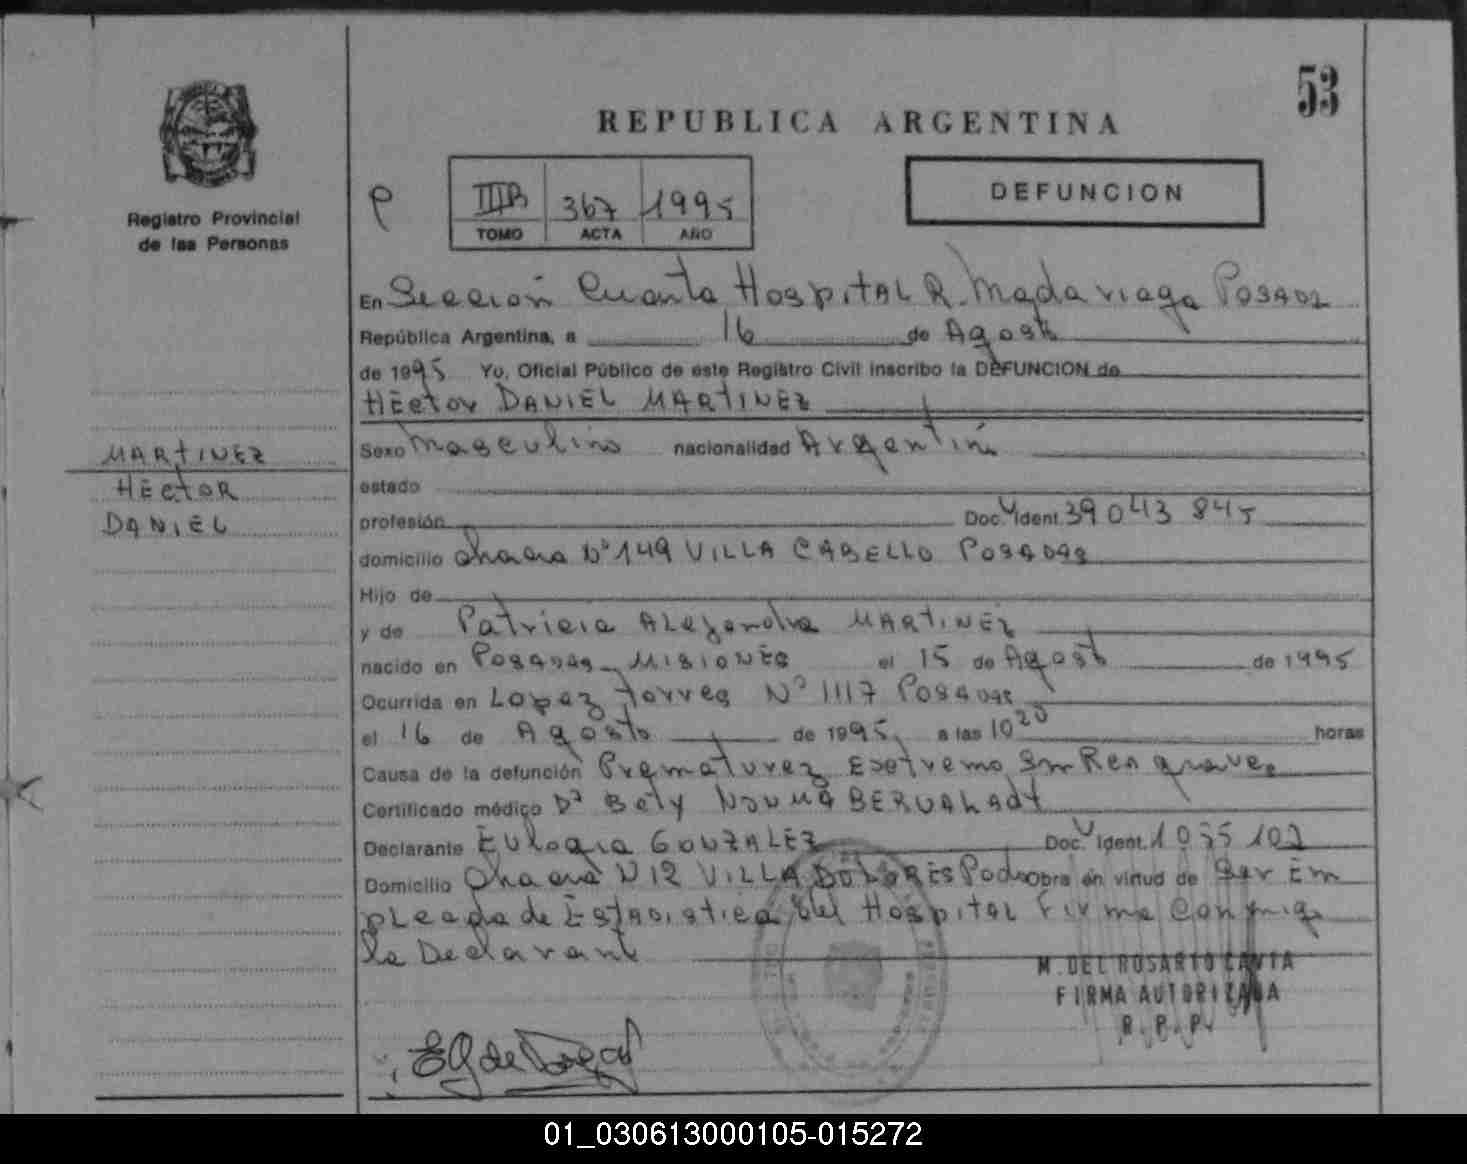 53
REPUBLICA ARGENTINA
DEFUNCION
Registro Provincial
de las Personas
IIIB 367 1995
TOMO ACTA AÑO
En Sección Cuarta Hospital R. Madariaga Posadas
República Argentina, a 16 de Agosto
de 1995 Yo, Oficial Público de este Registro Civil inscribo la DEFUNCION de
HÉctor DANIEL MARTINEZ
MARTINEZ
HÉCTOR
DANIEL
Sexo Masculino nacionalidad Argentin
estado
profesión Doc. Ident. 39 043 845
domicilio chacra Nº 149 VILLA CABELLO POSADAS
Hijo de
y de Patricia Alejandra MARTINEZ
nacido en Posadas Misiones el 15 de Agosto de 1995
Ocurrida en Lopez Torres Nº 1117 Posadas
el 16 de Agosto de 1995 a las 10 20 horas
Causa de la defunción Prematurez Extremo graves
Certificado médico Dª Bety Norma
Declarante Eulogia GONZALEZ Doc. Ident.
Domicilio Chacra N 12 VILLA DOLORES Pdas obra en virtud de Ser Em
pleada de Estadistica del Hospital Firma Conmigo
la Declarante
M. DEL ROSARIO
FIRMA AUTORIZADA
R. P. P.
01_030613000105-015272